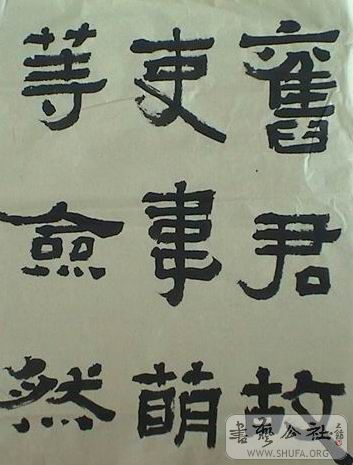 舊君故
吏韋萌
等僉然
書藝公社
WWW.SHUFA.ORG